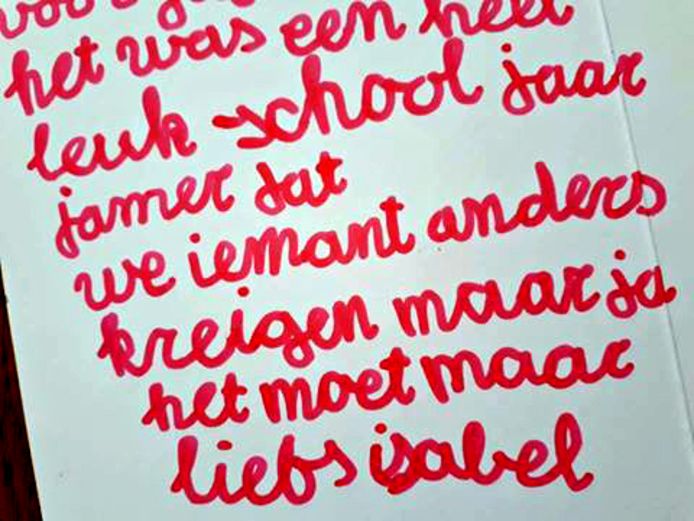 het was een heel
leuk school jaar
jamer dat
we iemant anders
kreigen maar ja
het moet maar
liefs isabel